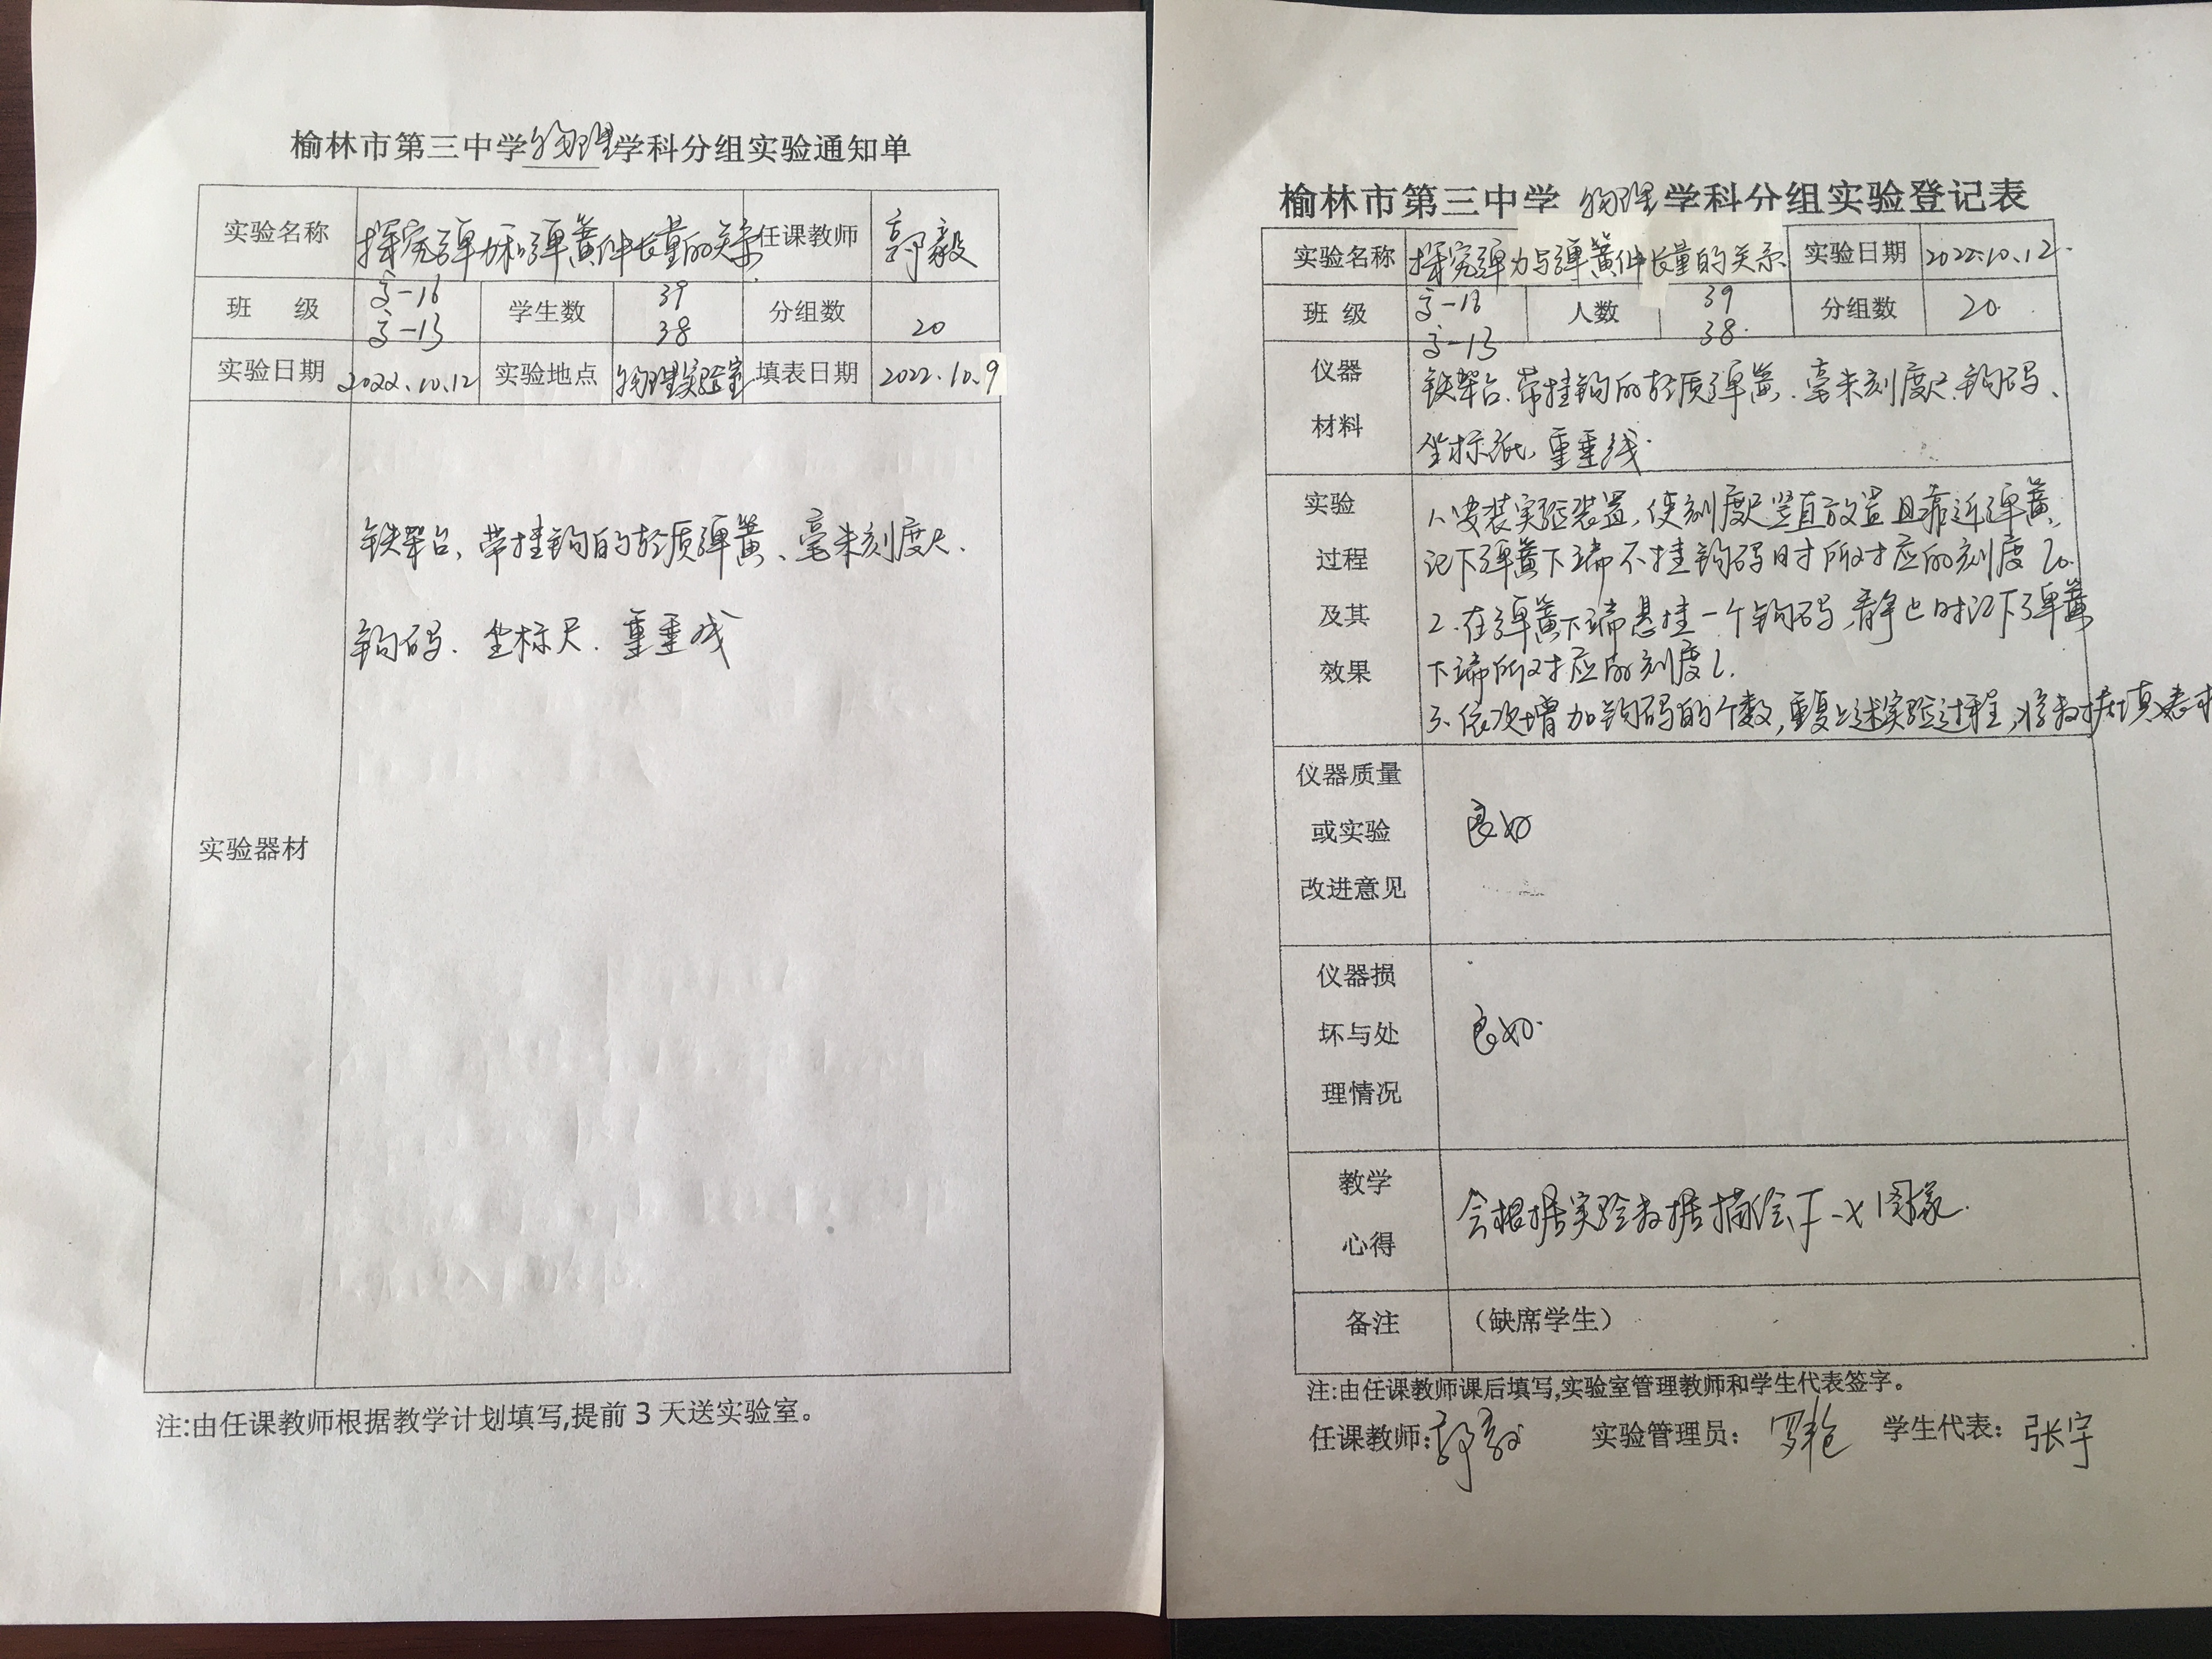 榆林市第三中学物理学科分组实验通知单
实验名称 探究弹力和弹簧伸长量的关系 任课教师 郭毅
班 级 高一16 学生数 39 分组数 20
高一13 38
实验日期 2022.10.12 实验地点 物理实验室 填表日期 2022.10.9
实验器材
铁架台、带挂钩的轻质弹簧、毫米刻度尺.
钩码. 坐标尺. 重垂线
注:由任课教师根据教学计划填写,提前3天送实验室。
榆林市第三中学 物理 学科分组实验登记表
实验名称 探究弹力与弹簧伸长量的关系 实验日期 2022.10.12.
班 级 高一16 人数 39 分组数 20.
高一13 38.
仪器
材料
铁架台、带挂钩的轻质弹簧、毫米刻度尺、钩码、
坐标纸、重垂线.
实验
过程
及其
效果
1、安装实验装置,使刻度尺竖直放置且靠近弹簧,
记下弹簧下端不挂钩码时所对应的刻度l0.
2.在弹簧下端悬挂一个钩码,静止时记下弹簧
下端所对应的刻度l.
3.依次增加钩码的个数,重复上述实验过程,将数据填表中
仪器质量
或实验
改进意见
良好
仪器损
坏与处
理情况
良好.
教学
心得
会根据实验数据描绘F-x图象.
备注 (缺席学生)
注:由任课教师课后填写,实验室管理教师和学生代表签字。
任课教师:郭毅 实验管理员: 学生代表:张宇